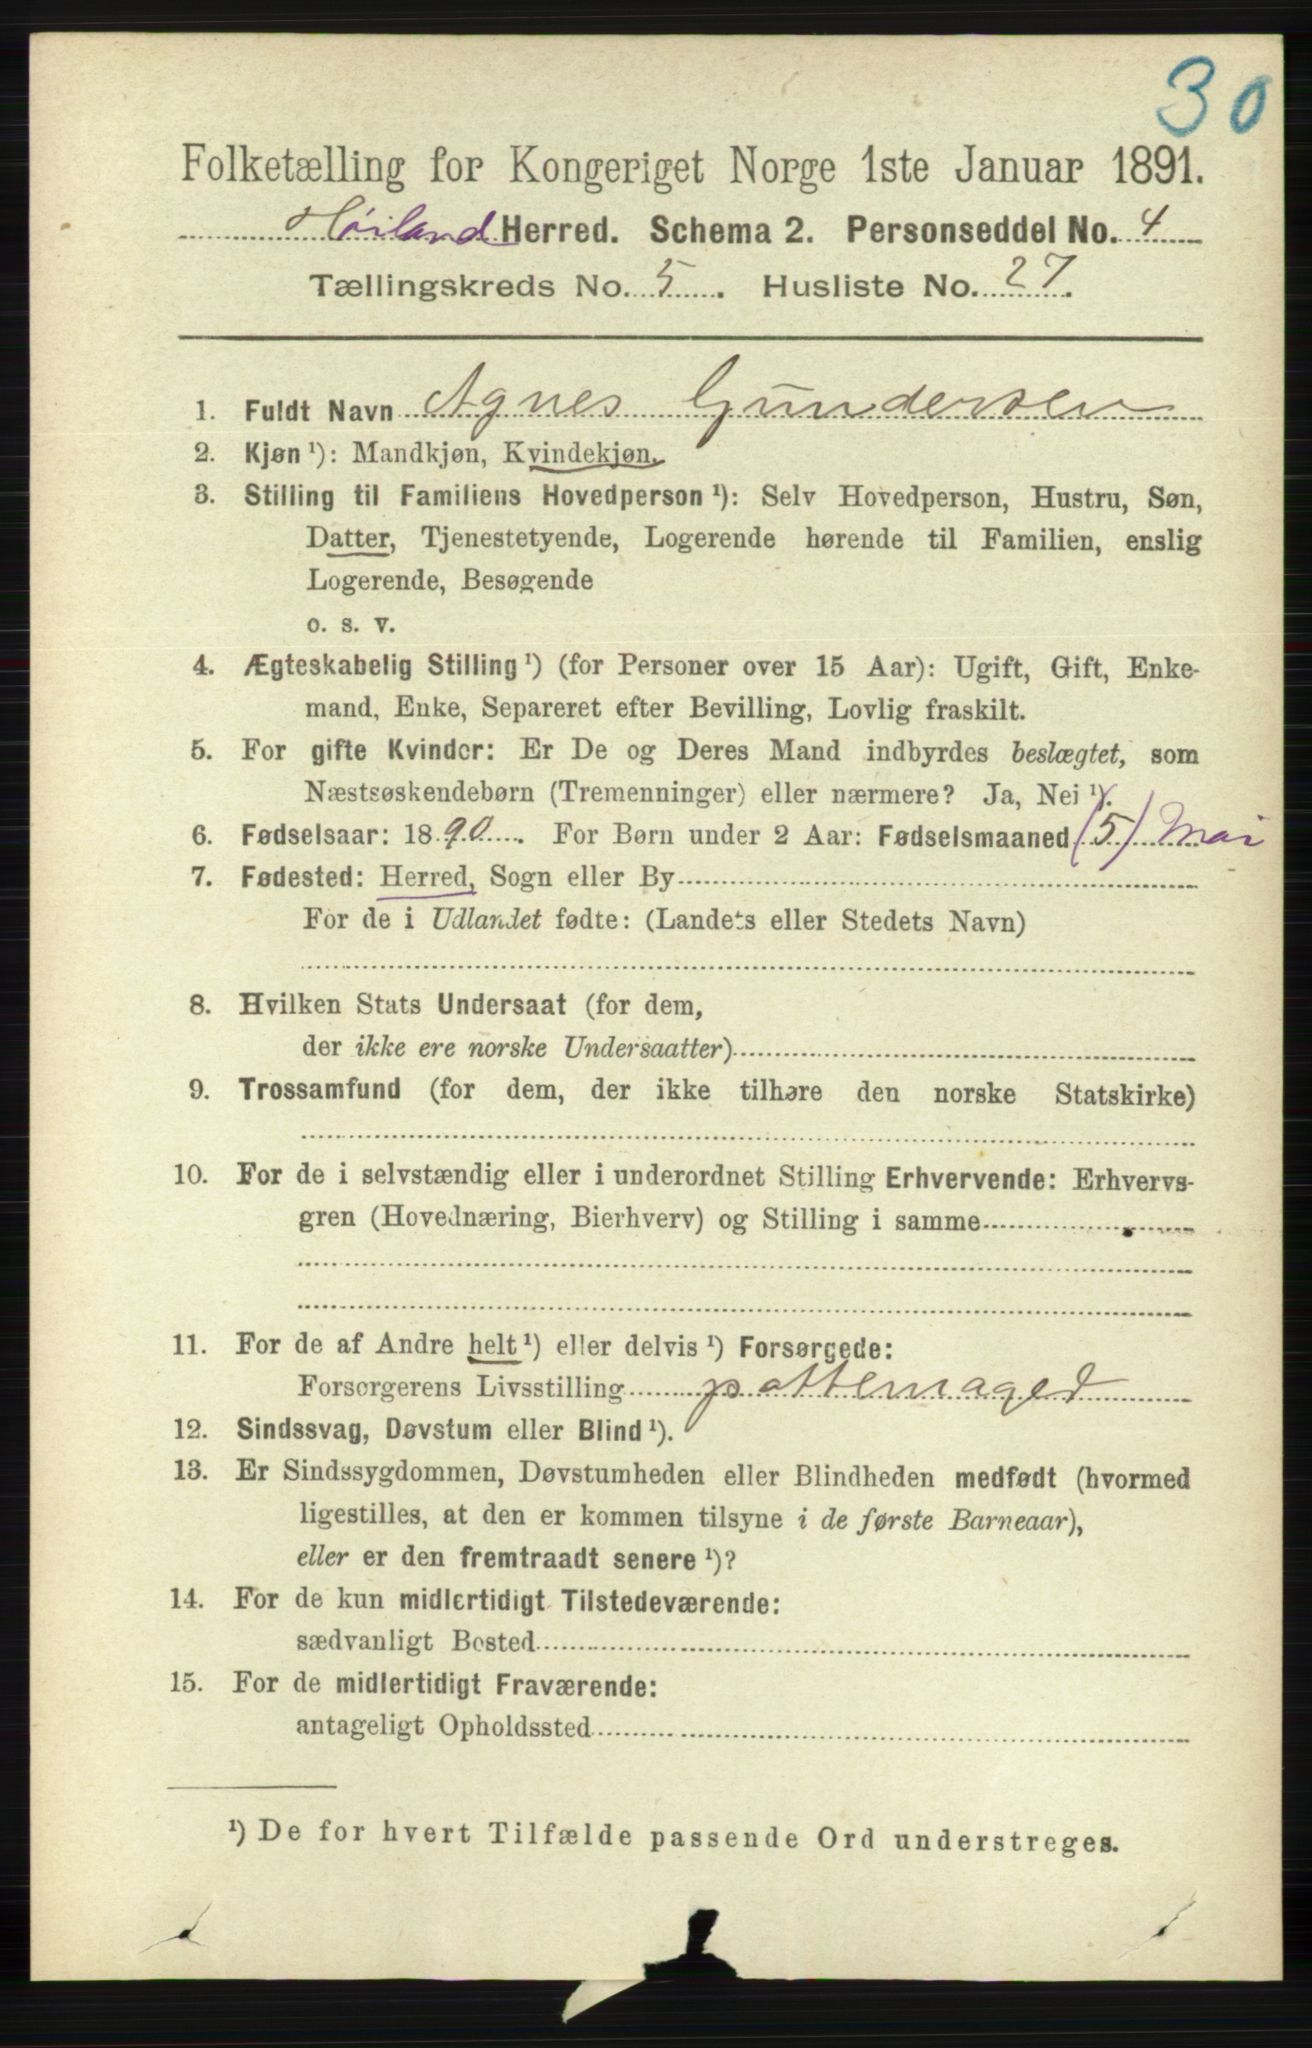 30
Folketælling for Kongeriget Norge 1ste Januar 1891.
Høiland Herred. Schema 2. Personseddel No. 4
Tællingskreds No. 5. Husliste No. 27.
1. Fuldt Navn Agnes Gundersen
2. Kjøn ¹): Mandkjøn, Kvindekjøn.
3. Stilling til Familiens Hovedperson ¹): Selv Hovedperson, Hustru, Søn,
Datter, Tjenestetyende, Logerende hørende til Familien, enslig
Logerende, Besøgende
o. s. v.
4. Ægteskabelig Stilling ¹) (for Personer over 15 Aar): Ugift, Gift, Enke-
mand, Enke, Separeret efter Bevilling, Lovlig fraskilt.
5. For gifte Kvinder: Er De og Deres Mand indbyrdes beslægtet, som
Næstsøskendebørn (Tremenninger) eller nærmere? Ja, Nei ¹).
6. Fødselsaar: 1890. For Børn under 2 Aar: Fødselsmaaned (5) Mai
7. Fødested: Herred, Sogn eller By
For de i Udlandet fødte: (Landets eller Stedets Navn)
8. Hvilken Stats Undersaat (for dem,
der ikke ere norske Undersaatter)
9. Trossamfund (for dem, der ikke tilhøre den norske Statskirke)
10. For de i selvstændig eller i underordnet Stilling Erhvervende: Erhvervs-
gren (Hovednæring, Bierhverv) og Stilling i samme
11. For de af Andre helt ¹) eller delvis ¹) Forsørgede:
Forsørgerens Livsstilling pottemager
12. Sindssvag, Døvstum eller Blind ¹).
13. Er Sindssygdommen, Døvstumheden eller Blindheden medfødt (hvormed
ligestilles, at den er kommen tilsyne i de første Barneaar),
eller er den fremtraadt senere ¹)?
14. For de kun midlertidigt Tilstedeværende:
sædvanligt Bosted
15. For de midlertidigt Fraværende:
antageligt Opholdssted
¹) De for hvert Tilfælde passende Ord understreges.